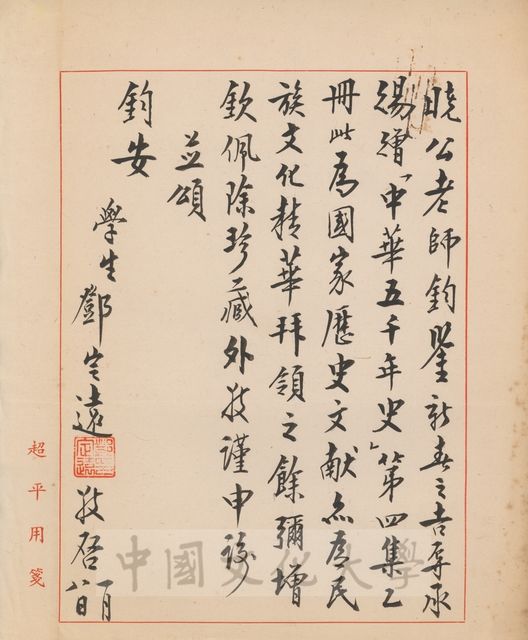 曉公老師鈞鑒新春之吉辱承
惕贈「中華五千年史」第四集乙
冊此為國家歷史文獻亦為民
族文化精華拜領之餘彌增
欽佩除珍藏外敬謹申謝
並頌
鈞安
學生鄧定遠 敬啓 一月八日
鄧定遠
超平用箋
中國文化大學